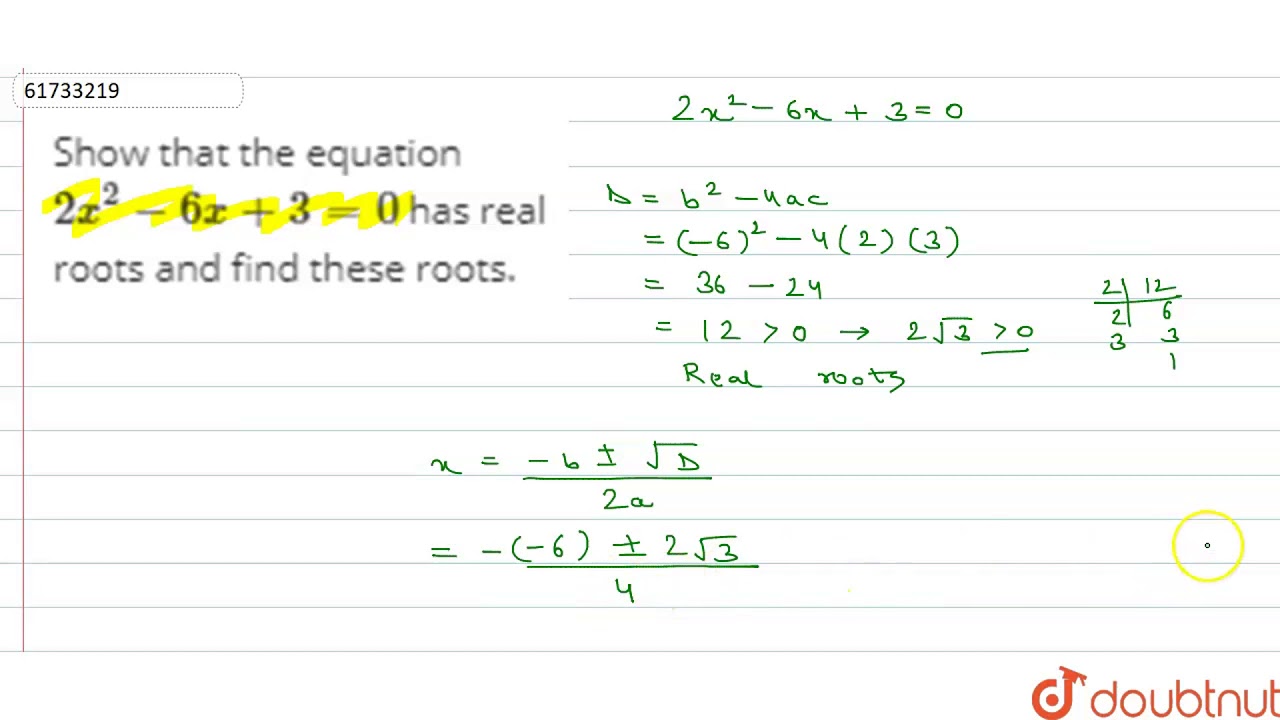 61733219
Show that the equation
2x² − 6x + 3 = 0 has real
roots and find these roots.
2x² − 6x + 3 = 0
D = b² − 4ac
= (−6)² − 4(2)(3)
= 36 − 24
= 12 > 0 → 2√3 > 0
Real roots
2 | 12
2 | 6
3 3
1
x = −b ± √D
2a
= −(−6) ± 2√3
4
doubtnut